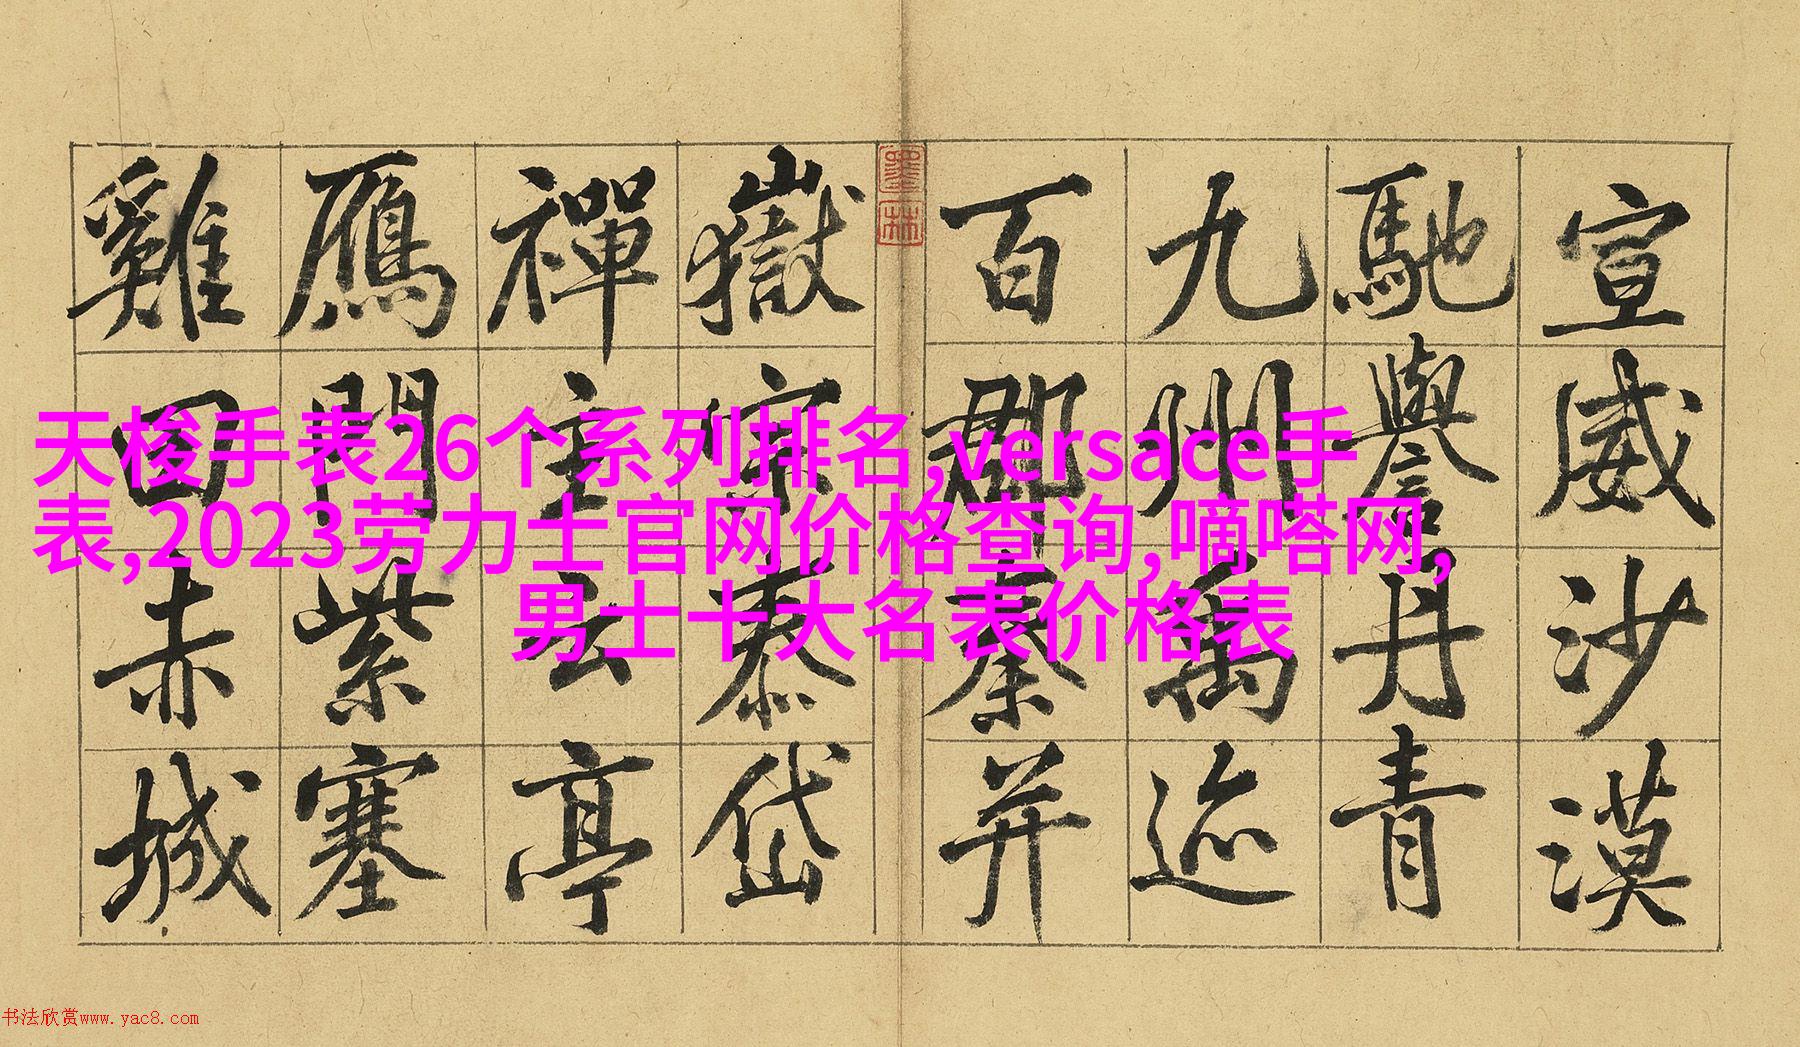 宣威沙漠
馳譽丹青
九州禹迹
百郡秦并
墨林
嶽宗泰岱
禪主云亭
鴈門紫塞
雞田赤城
天梭手表26个系列排名,versace手
表,2023劳力士官网价格查询,嘀嗒网,
男士十大名表价格表
书法欣赏www.yac8.com